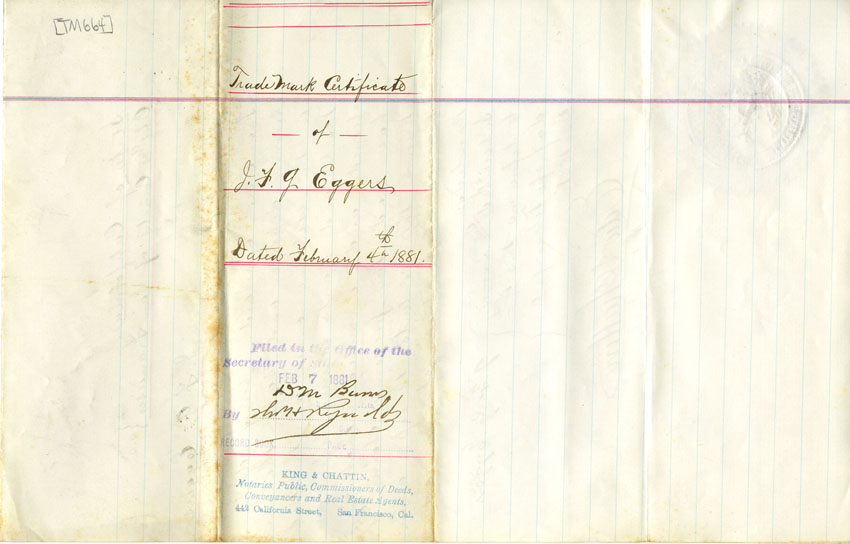 [TM664]
Trade Mark Certificate
— of —
J. F. G Eggers
Dated February 4th 1881.
Filed in the Office of the
Secretary of State
FEB 7 1881
D M Burns
By Thos H Reynolds
RECORD BOOK PAGE
KING & CHATTIN,
Notaries Public, Commissioners of Deeds,
Conveyancers and Real Estate Agents,
442 California Street, San Francisco, Cal.